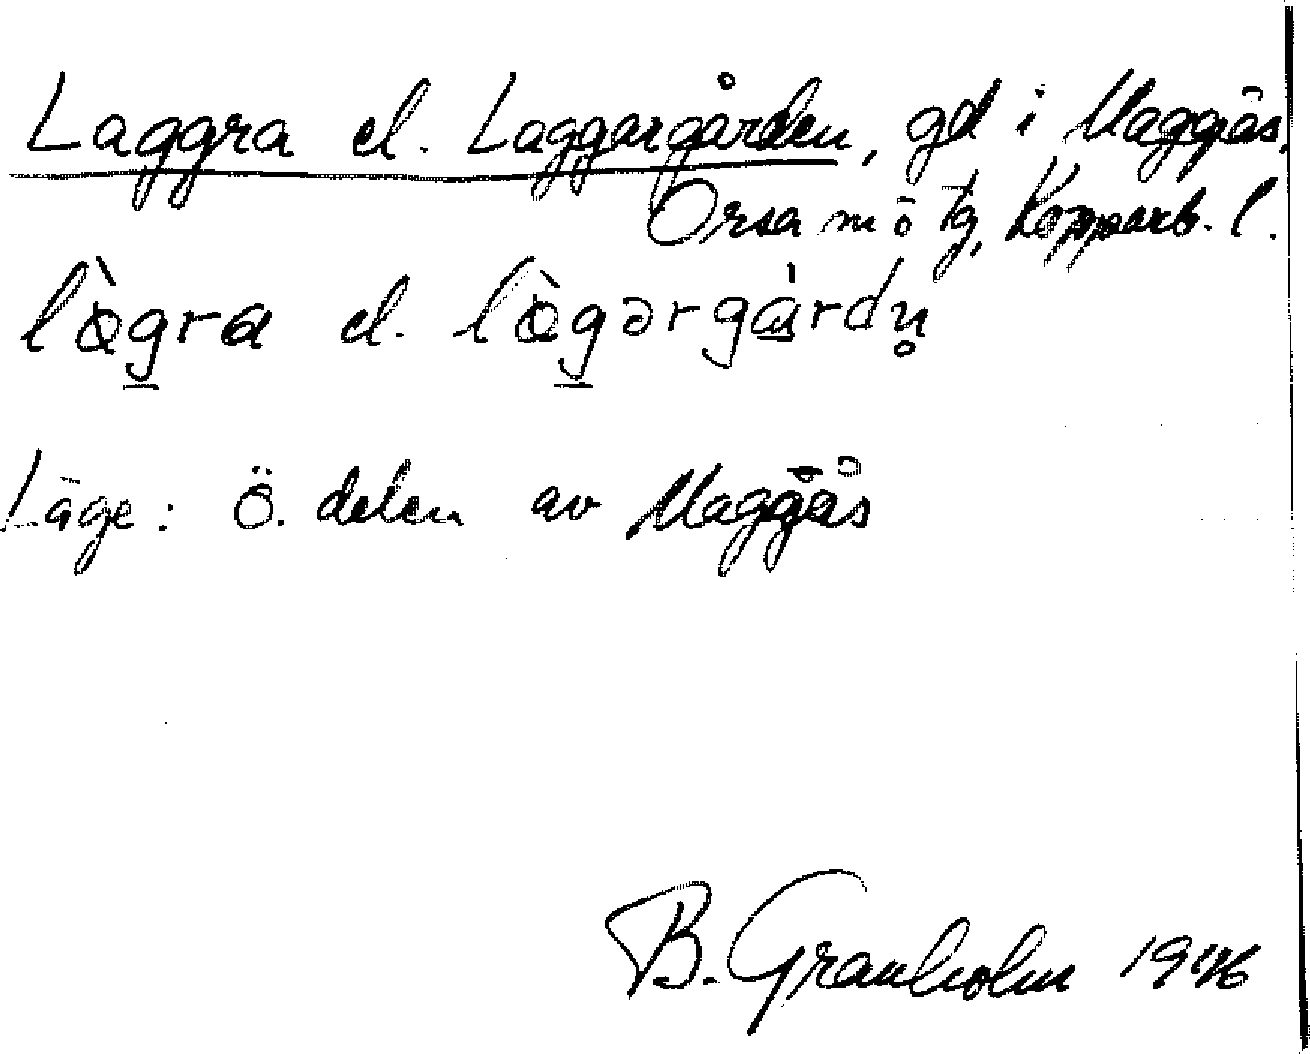 Laggra el. Laggargården, gd i Maggås,
Orsa
lògra el. lògərgårdn̥
Läge: Ö. delen av Maggås
B. Granholm 1946